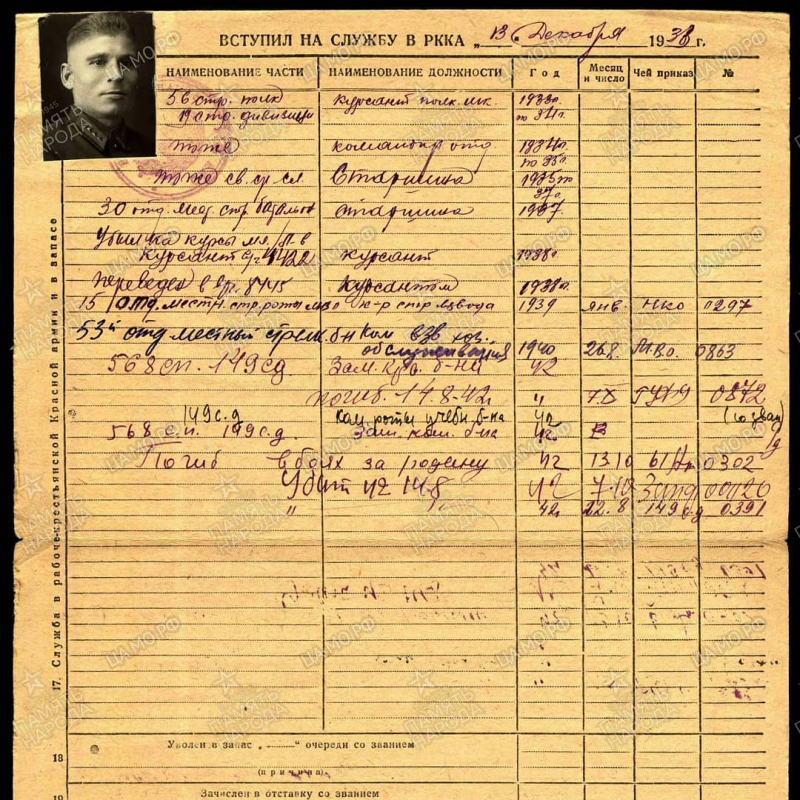 ВСТУПИЛ НА СЛУЖБУ В РККА „13“ Декабря 1933 г.
НАИМЕНОВАНИЕ ЧАСТИ НАИМЕНОВАНИЕ ДОЛЖНОСТИ Год Месяц и число Чей приказ №
56 стр. полк курсант полк. шк. 1933г.
19 стр. дивизии по 34г.
тоже командир отд 1934г.
по 35г.
тоже св. ср. сл Старшина 1935 по
37г.
30 отд. мест. стр. батальон старшина 1937.
Убыл на курсы мл.
курсант 4422 курсант 1938г
переведен в 8445 Курсантом 1938г.
15 отд. местн. стр. роты к-р стр. взвода 1939 янв. НКО 0297
53й отд местный стрелк. б-н Ком взв хоз.
обслуживания 1940 26.8. М.В.О. 0863
568 сп. 149 сд Зам. б-на 42
погиб. 14.8-42г. „ 0872
149 с.д Ком. роты учебн. б-на 42
568 с.п. 149 с.д. Зам. ком. б-на 42.
Погиб в боях за родину 42 13.10 61 Ар 0302
Убит 42 14.8 42 7.10 00120
„ 42г 22.8 149 с.д 0391
17. Служба в рабоче-крестьянской Красной армии и в запасе
18 Уволен в запас „——“ очереди со званием
(причина)
19 Зачислен в отставку со званием
ПАМЯТЬ НАРОДА
ЦАМО.РФ